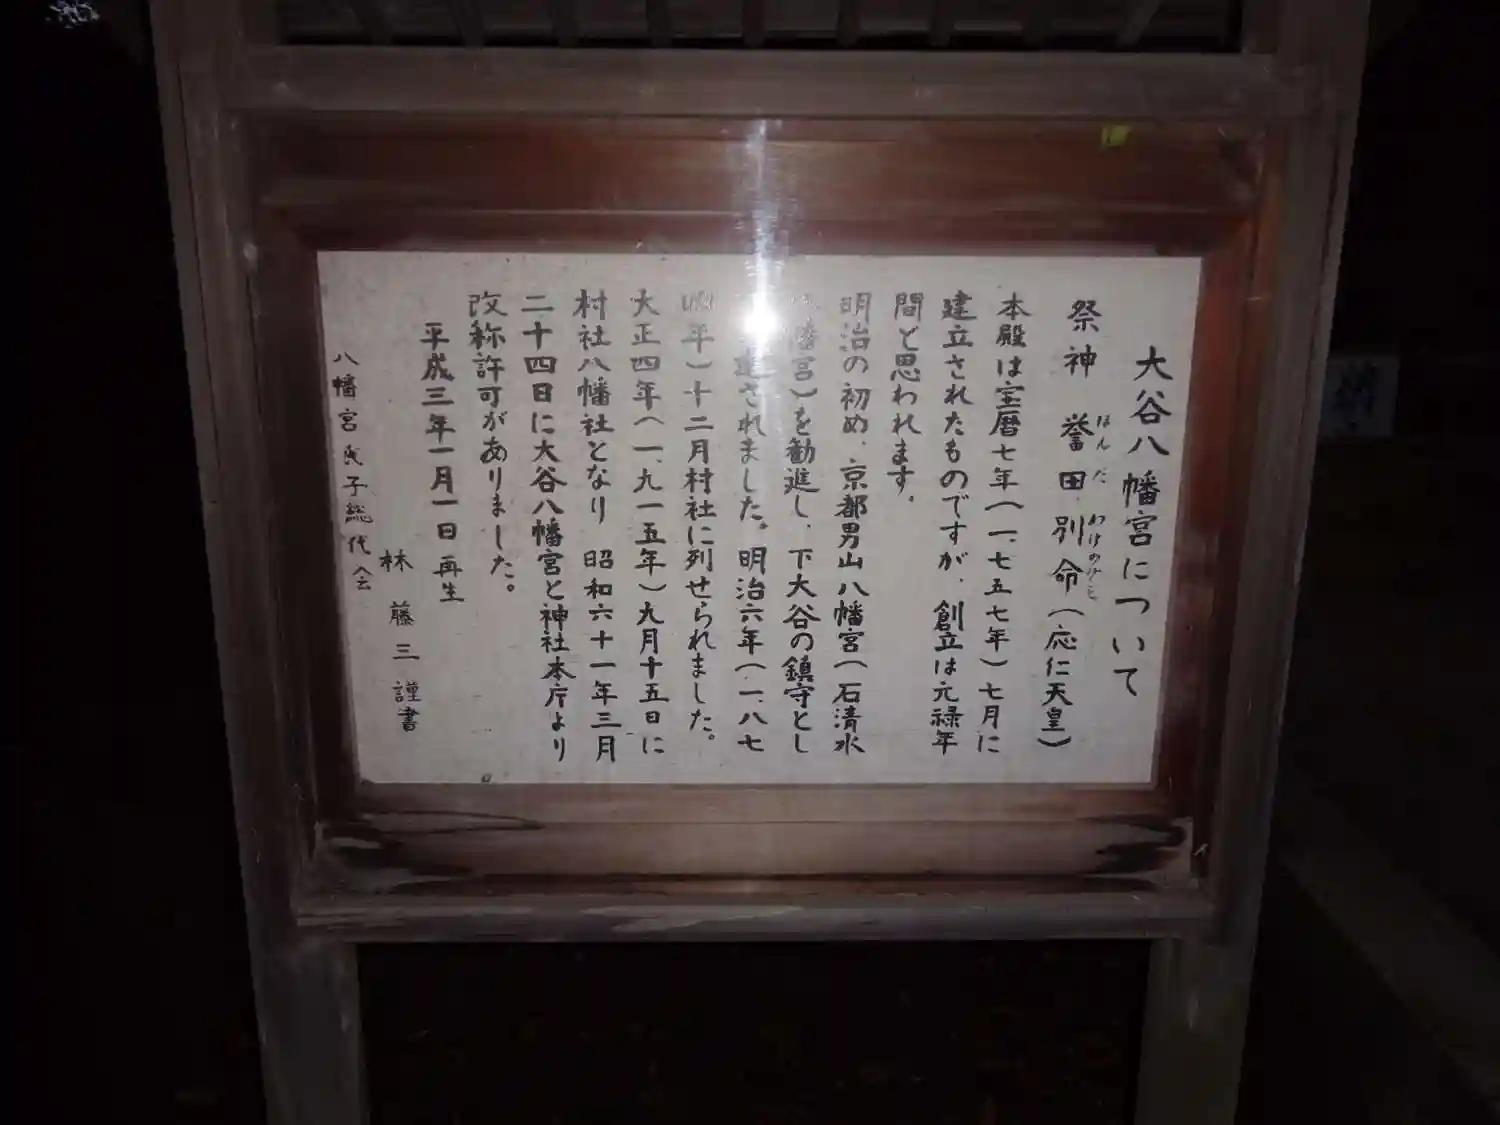 大谷八幡宮について
祭神 誉田別命(応仁天皇)
ほんだ わけのみこと
本殿は宝暦七年(一、七五七年)七月に
建立されたものですが、創立は元禄年
間と思われます。
明治の初め、京都男山八幡宮(石清水
幡宮)を勧進し、下大谷の鎮守とし
されました。明治六年(一、八七
年)十二月村社に列せられました。
大正四年(一、九一五年)九月十五日に
村社八幡社となり 昭和六十一年三月
二十四日に大谷八幡宮と神社本庁より
改称許可がありました。
平成三年一月一日 再生
林 藤三 謹書
八幡宮氏子総代会